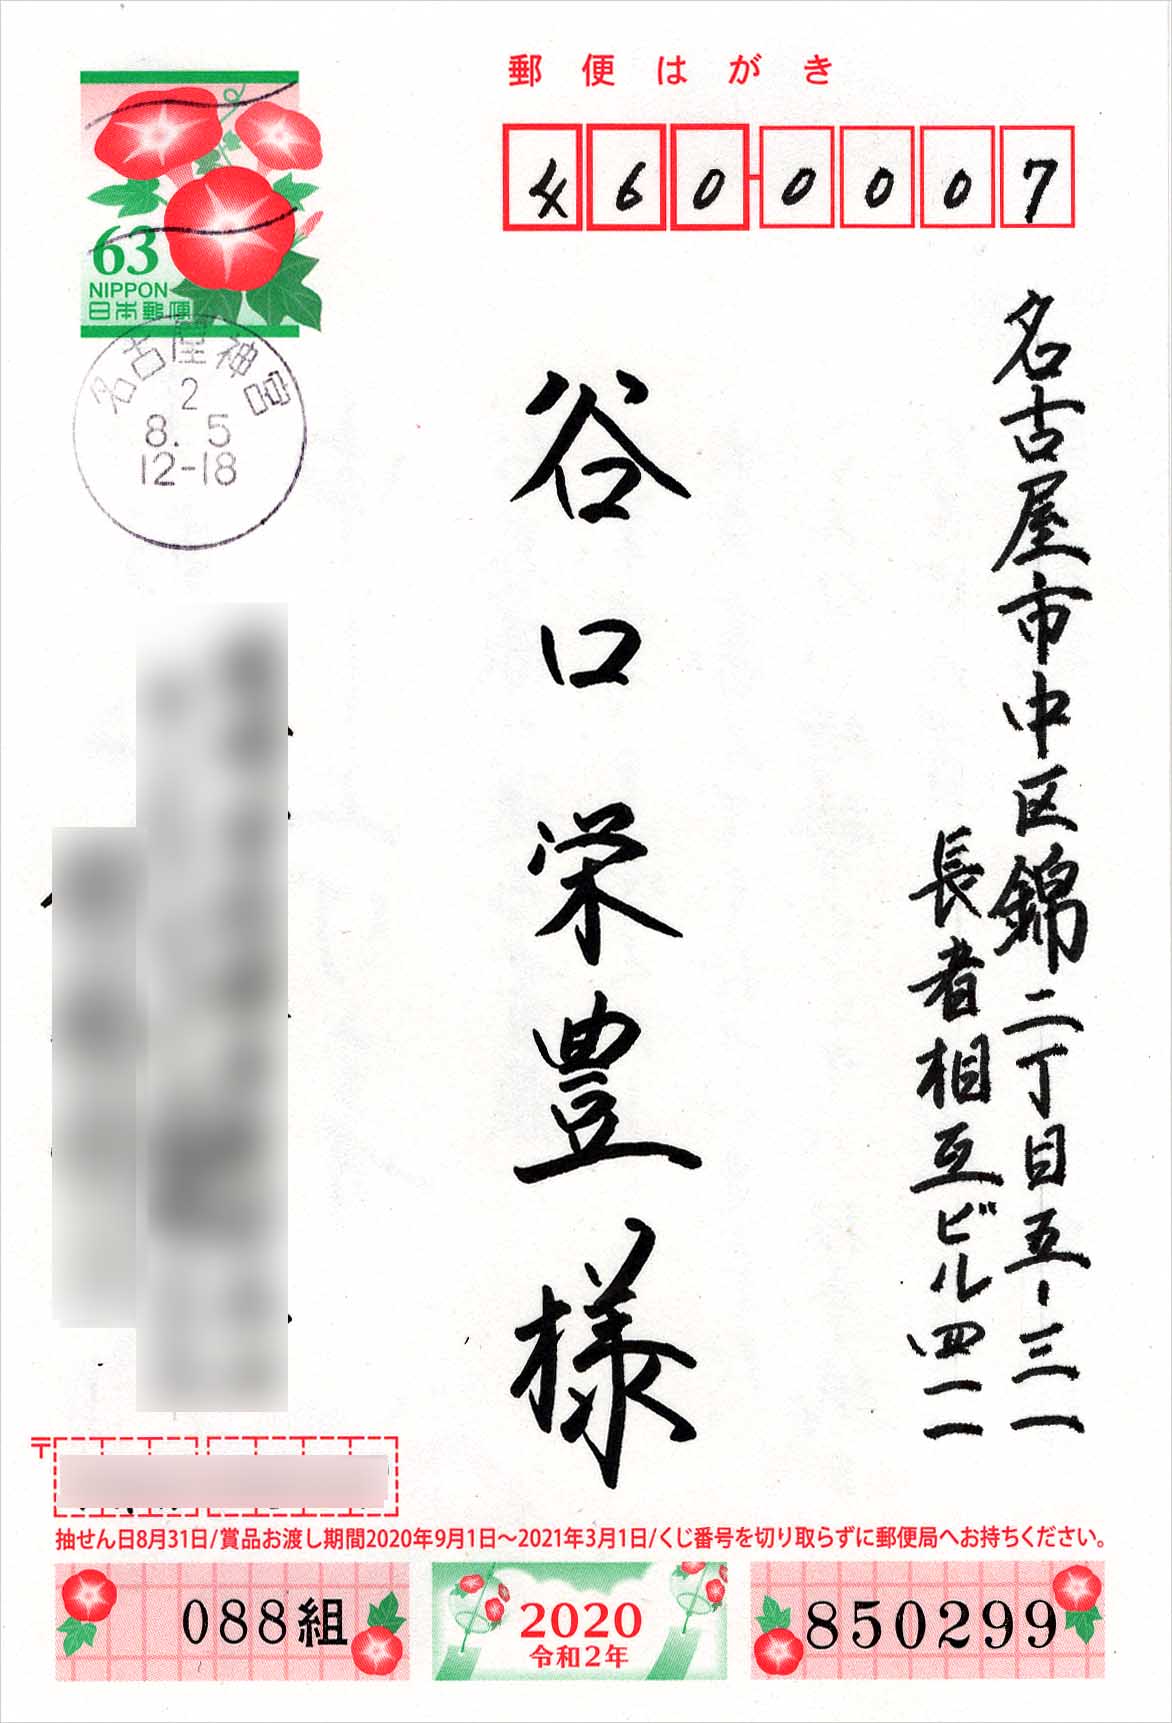 郵便はがき
460-0007
63
NIPPON
日本郵便
名古屋神宮
2
8. 5
12-18
名古屋市中区錦二丁目五-三一
長者相互ビル四一一
谷口栄豊様
〒
抽せん日8月31日/賞品お渡し期間2020年9月1日～2021年3月1日/くじ番号を切り取らずに郵便局へお持ちください。
088組
2020
令和2年
850299